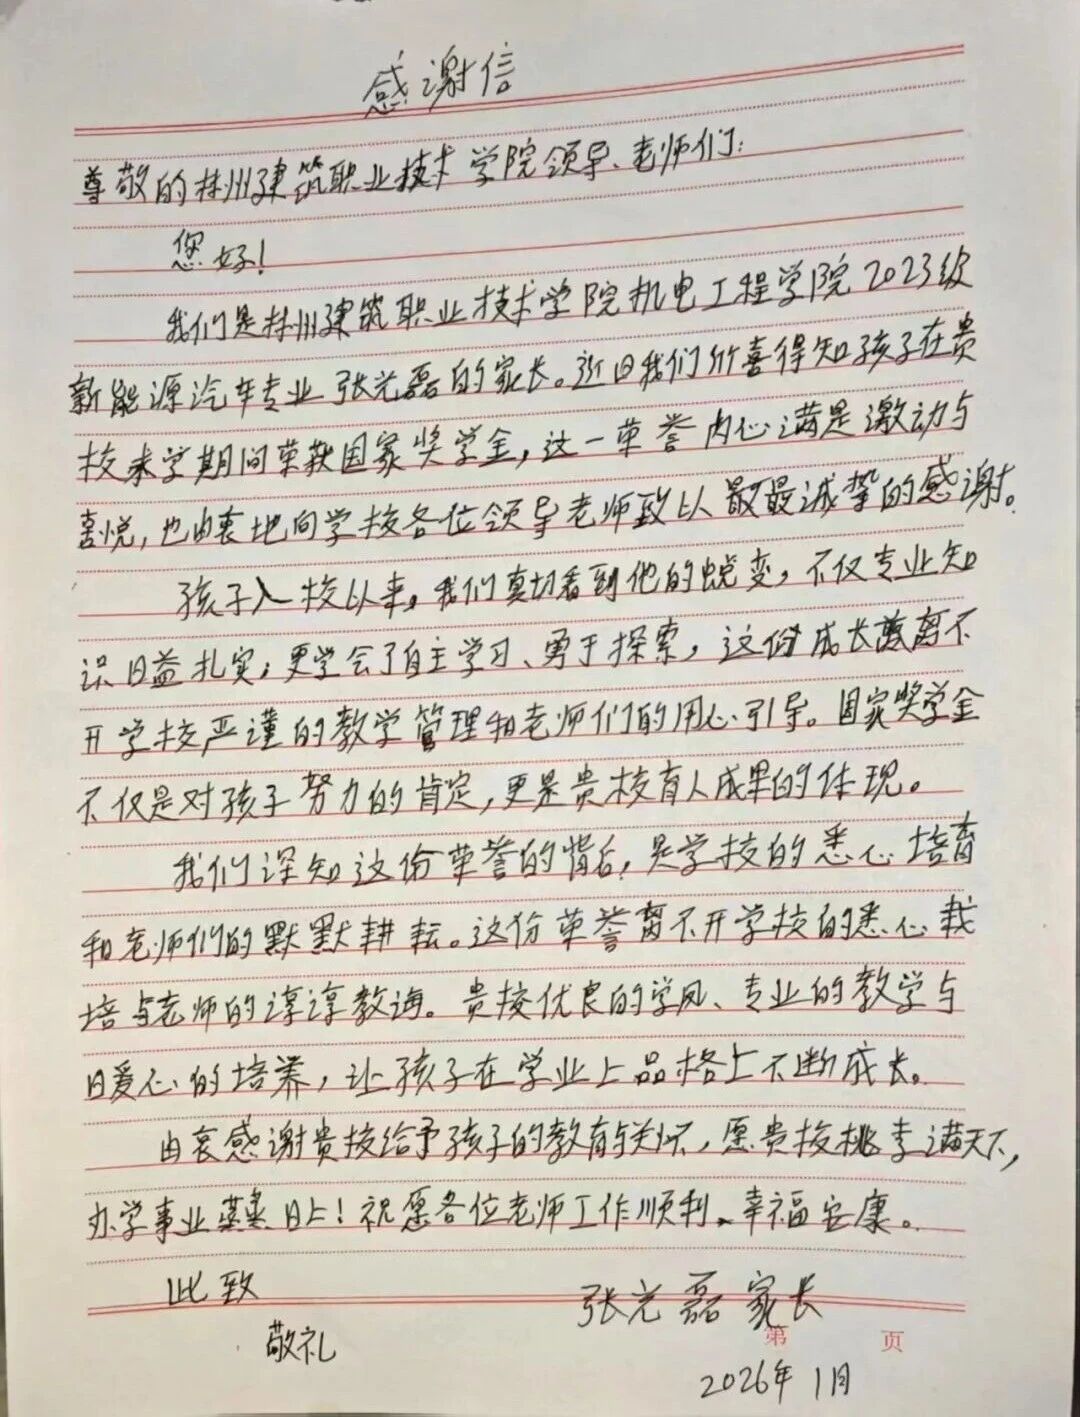 感谢信
尊敬的林州建筑职业技术学院领导、老师们:
您好!
我们是林州建筑职业技术学院机电工程学院2023级
新能源汽车专业张光磊的家长。近日我们欣喜得知孩子在贵
校求学期间荣获国家奖学金,这一荣誉内心满是激动与
喜悦,也由衷地向学校各位领导老师致以最诚挚的感谢。
孩子入校以来,我们真切看到他的蜕变,不仅专业知
识日益扎实,更学会了自主学习、勇于探索,这份成长离不
开学校严谨的教学管理和老师们的用心引导。国家奖学金
不仅是对孩子努力的肯定,更是贵校育人成果的体现。
我们深知这份荣誉的背后,是学校的悉心培育
和老师们的默默耕耘。这份荣誉离不开学校的悉心栽
培与老师的谆谆教诲。贵校优良的学风、专业的教学与
暖心的培养,让孩子在学业上品格上不断成长。
由衷感谢贵校给予孩子的教育与关怀,愿贵校桃李满天下,
办学事业蒸蒸日上!祝愿各位老师工作顺利、幸福安康。
此致
张光磊家长
敬礼
第 页
2026年1月